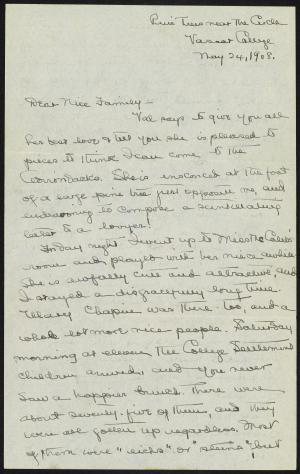 Pine Trees near the Circle
Vassar College
May 24, 1908.
Dear Nice Family –
Val says to give you all
her best love & tell you she is pleased to
pieces to think I can come to the
Adirondacks. She is ensconced at the foot
of a large pine tree just opposite me, and
endeavoring to compose a scintillating
letter to a lawyer!
Friday night I went up to Miss McCaleb's
room and played with her niece awhile.
She is awfully cute and attractive, and
I stayed a disgracefully long time.
Chapin was there too, and a
whole lot more nice people. Saturday
morning at eleven the College Settlement
children arrived, and you never
saw a happier bunch. There were
about seventy-five of them, and they
were all gotten up regardless. Most
of them were "eichs" or "steins", but